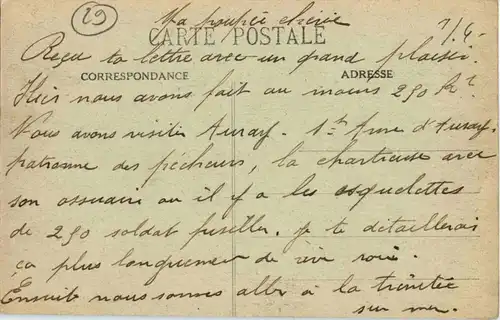 29
Ma poupée chérie
1/4
CARTE POSTALE
Reçu ta lettre avec un grand plaisir.
CORRESPONDANCE
ADRESSE
Hier nous avons fait au moins 250 K^s
Nous avons visitée Auray. S^te Anne d'Auray,
patronne des pêcheurs, la chartreuse avec
son ossuaire ou il y a les esquelettes
de 250 soldat fusiller. je te detaillerais
ça plus longuement de vive voix.
Ensuite nous sommes aller à la trinitée
sur mer.